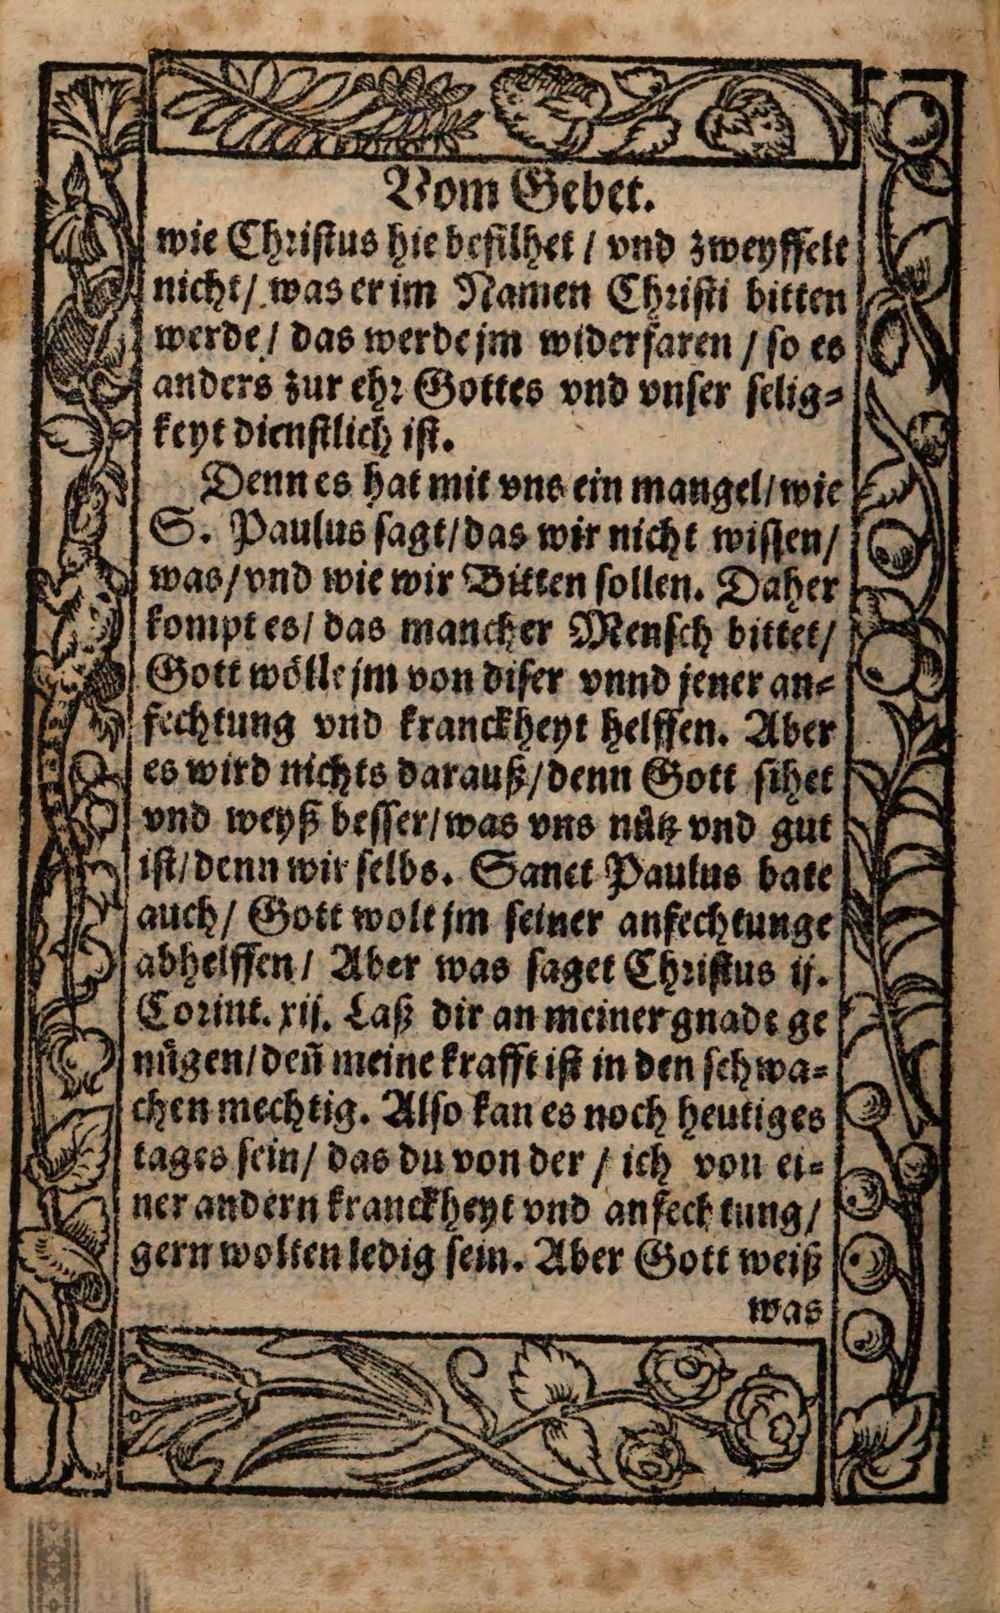 Vom Gebet.
wie Christus hie befilhet / vnd zweyffelt
nicht / was er im Namen Christi bitten
werde / das werde jm widerfaren / so es
anders zur ehr Gottes vnd vnser selig=
keyt dienstlich ist.
Denn es hat mit vns ein mangel / wie
S. Paulus sagt / das wir nicht wissen /
was / vnd wie wir Bitten sollen. Daher
kompt es / das mancher Mensch bittet /
Gott wölle jm von diser vnnd jener an=
fechtung vnd kranckheyt helffen. Aber
es wird nichts darauß / denn Gott sihet
vnd weyß besser / was vns nütz vnd gut
ist / denn wir selbs. Sanct Paulus bate
auch / Gott wolt jm seiner anfechtunge
abhelffen / Aber was saget Christus ij.
Corint. xij. Laß dir an meiner gnade ge
nügen / deñ meine krafft ist in den schwa=
chen mechtig. Also kan es noch heutiges
tages sein / das du von der / ich von ei=
ner andern kranckheyt vnd anfechtung /
gern wolten ledig sein. Aber Gott weiß
was